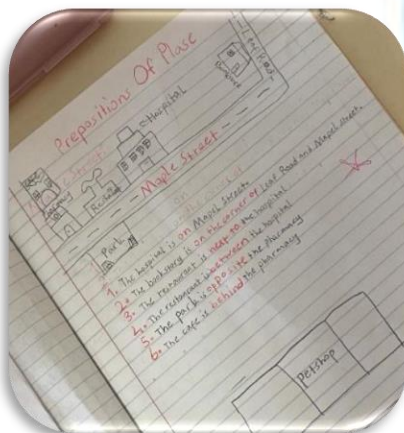 Prepositions Of Plase
Leaf Road
Hospital
Street
Maple Street
Park
1. The hospital is on Mapel Street.
2. The bookstory is on the corner of Leaf Road and Mapel street.
3. The restaurant is next to the hospital
4. The restaurant is between the hospital
5. The park is opposite the pharmacy
6. The cafe is behind the pharmacy
petshop